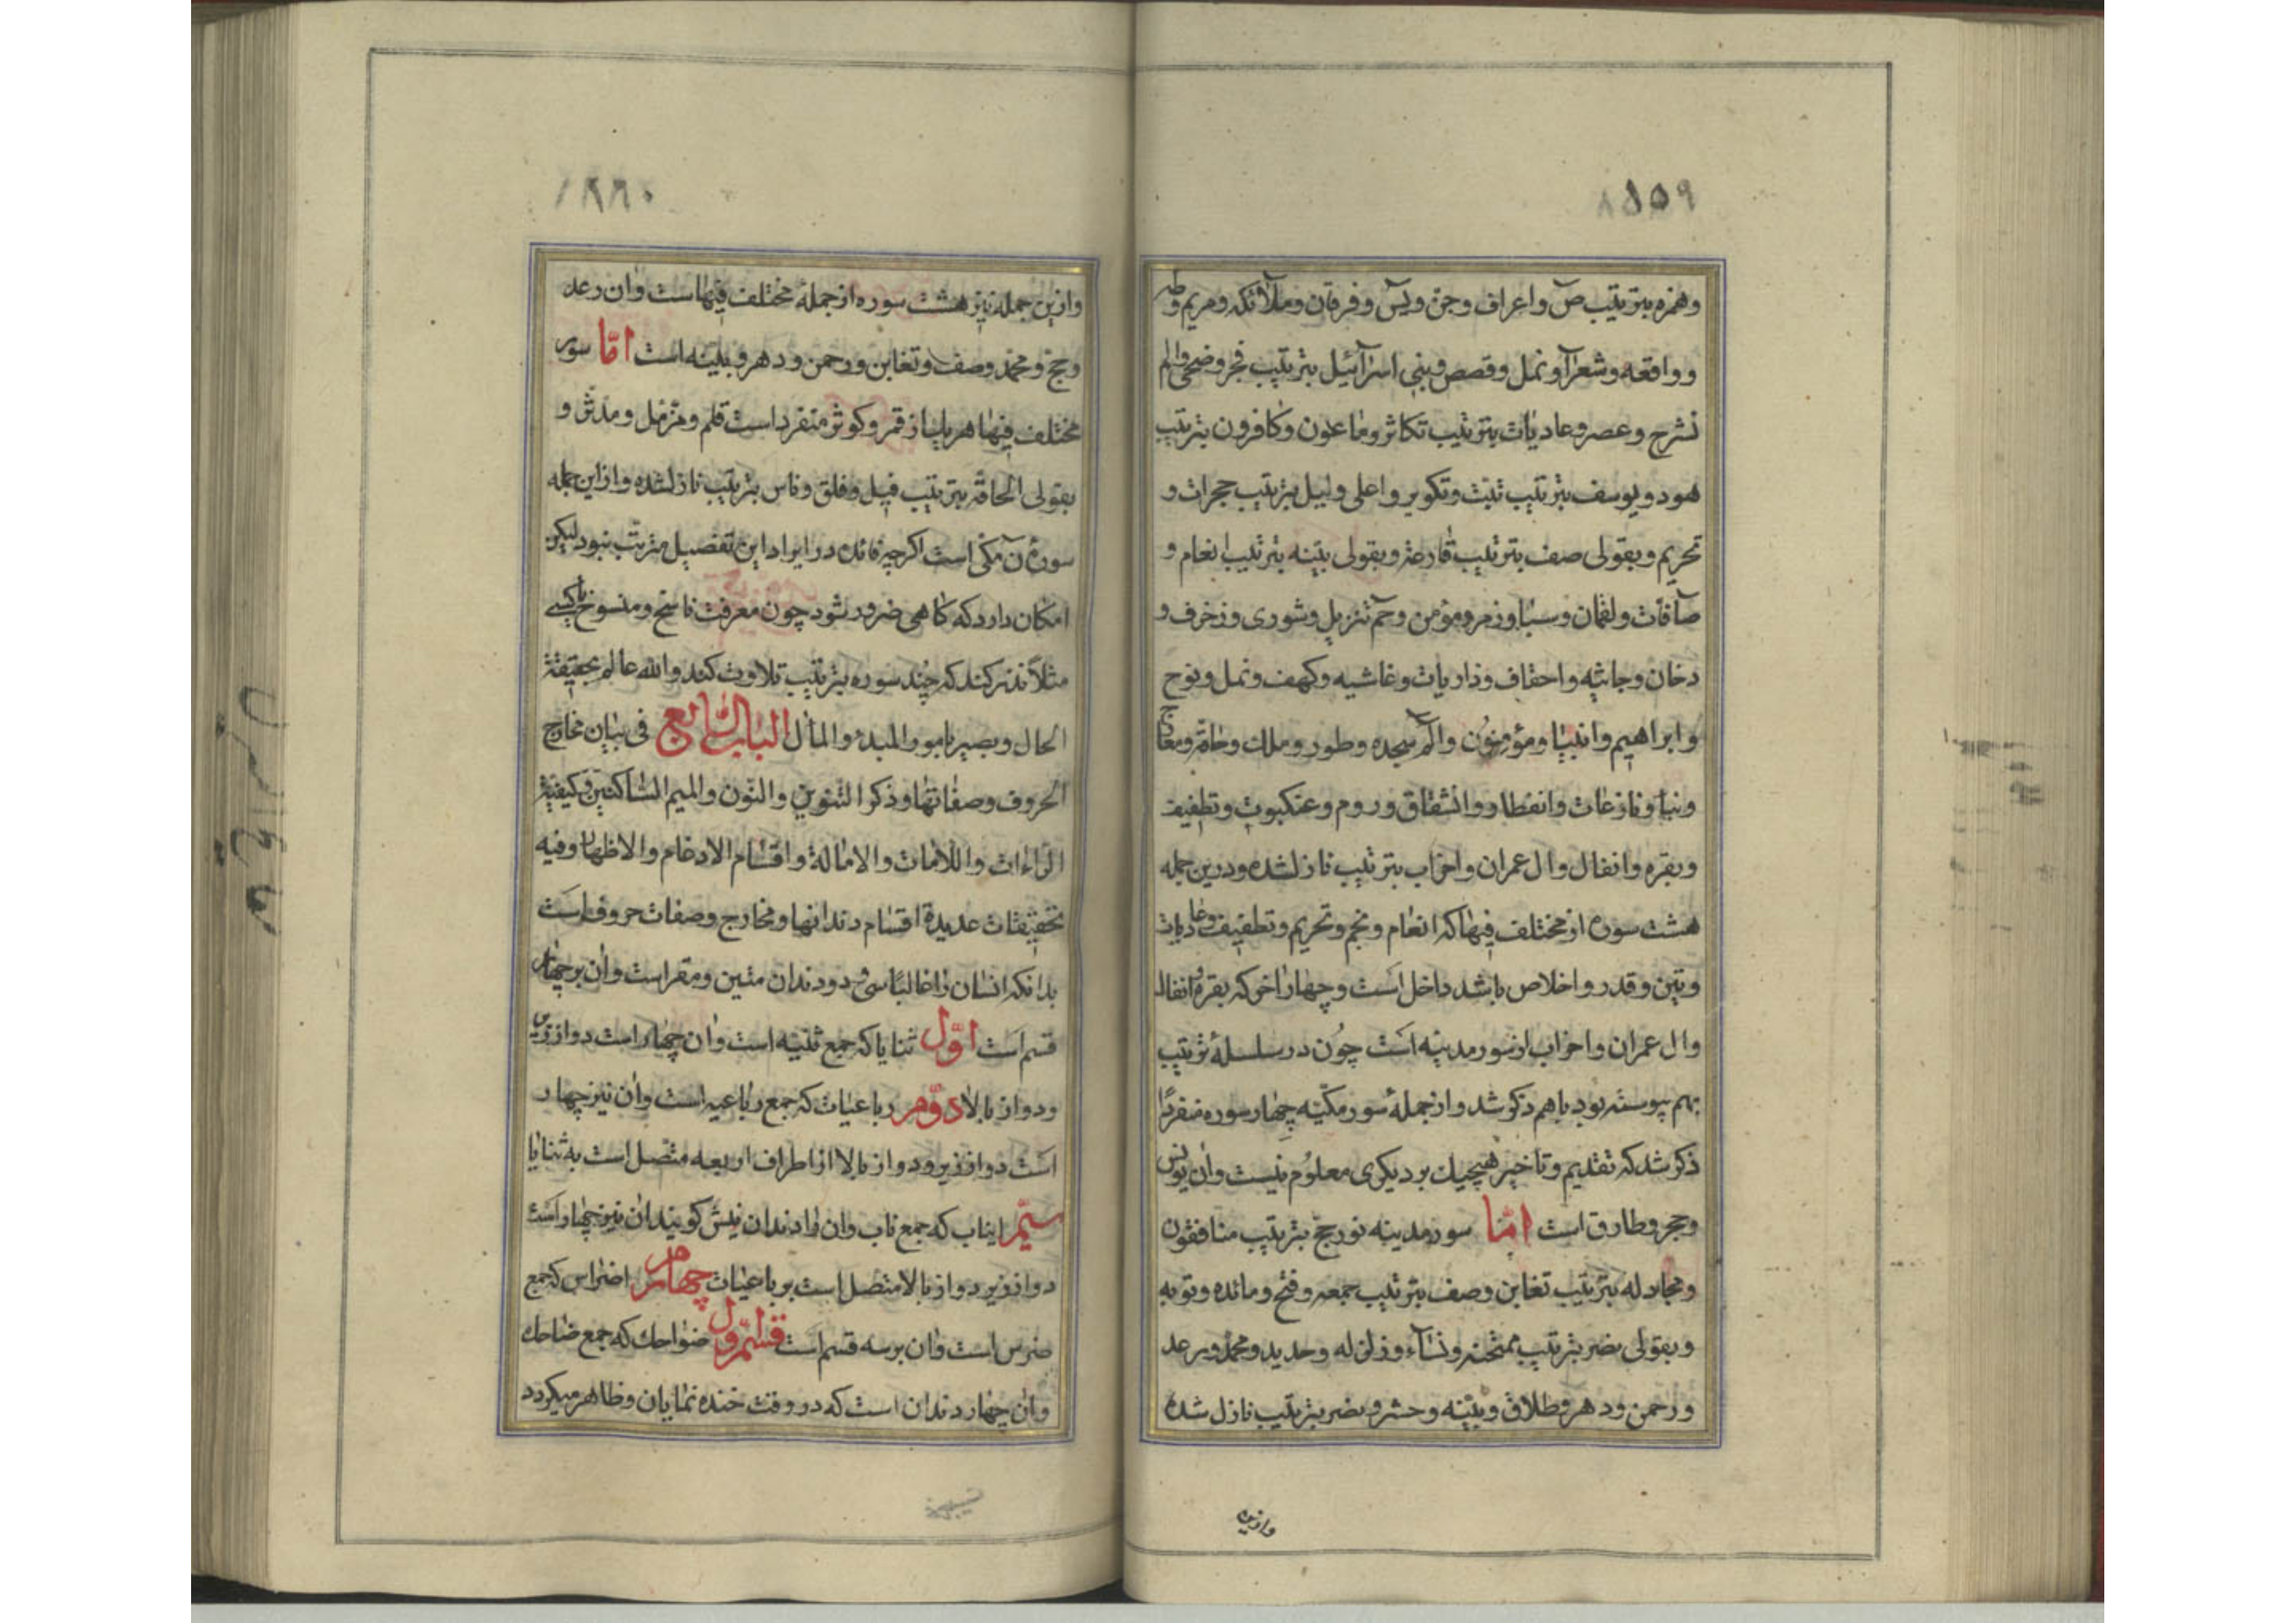 وهمزه بترتیب ص واعراف وجن ویس وفرقان وملآئکه ومریم وطه
وواقعه وشعرآ ونمل وقصص وبنی اسرآئیل بترتیب فجر وضحی والم
نشرح وعصر وعادیات بترتیب تکاثر وماعون وکافرون بترتیب
هود ویوسف بترتیب تبت وتکویر واعلی ولیل بترتیب حجرات و
تحریم وبقولی صف بترتیب قارعه وبقولی بینه بترتیب انعام و
صآفات ولقمان وسبا وزمر ومؤمن وحم تنزیل وشوری وزخرف و
دخان وجاثیه واحقاف وذاریات وغاشیه وکهف ونمل ونوح
وابراهیم وانبیا ومؤمنون والم سجده وطور وملک وحاقه ومعارج
ونبا ونازعات وانفطار وانشقاق وروم وعنکبوت وتطفیف
وبقره وانفال وال عمران واحزاب بترتیب نازلشده ودرین جمله
هشت سوره از مختلف فیها که انعام ونجم وتحریم وتطفیف وعادیات
وتین وقدر واخلاص باشد داخل است وچهار اخر که بقره وانفال
وال عمران واحزاب از سور مدینه است چون در سلسلۀ ترتیب
بهم پیوسته بود باهم ذکر شد واز جملۀ سور مکیه چهار سوره منفردا
ذکر شد که تقدیم وتاخیر هیچیك بر دیکری معلوم نیست وان یونس
وحجر وطارق است امّا سور مدینه نور حج بترتیب منافقون
ومجادله بترتیب تغابن وصف بترتیب جمعه وفتح ومائده وتوبه
وبقولی نصر بترتیب ممتحنه ونسآء وزلزله وحدید ومحمد ورعد
ورحمن ودهر وطلاق وبینه وحشر ونصر بترتیب نازل شده
وازین
وازین جمله نیز هشت سوره از جملۀ مختلف فیها است وان رعد
وحج ومحمد وصف وتغابن ورحمن ودهر وبینه است امّا سور
مختلف فیها هر یك از قمر وکوثر منفرد است قلم ومزمل ومدثر و
بقولی الحاقه بترتیب فیل وفلق وناس بترتیب نازلشده وازاین جمله
سورۀ ن مکی است اکرچه فائده در ایراد این تفصیل مترتب نبود لیکن
امکان دارد که کاهی ضرور شود چون معرفت ناسخ ومنسوخ یا کسی
مثلاً نذر کند که چند سوره بترتیب تلاوت کند والله عالم بحقیقة
الحال وبصیر بامور المبدء والمآل الباب السّابع فی بیان مخارج
الحروف وصفاتها وذکر التنوین والنّون والمیم السّاکنتین وکیفیة
الرّاءات واللّامات والامالة واقسام الادغام والاظهار وفیه
تحقیقات عدیدة اقسام دندانها ومخارج وصفات حروف است
بدانکه انسان را غالبًا سی ودو دندان متین ومقر است وان بر چهار
قسم است اوّل ثنایا که جمع ثنیه است وان چهار است دو از زیر
ودو از بالا دوّم رباعیات که جمع رباعیه است وان نیز چهار
است دو از زیر ودو از بالا از اطراف اربعه متصل است به ثنایا
سیّم انیاب که جمع ناب وان را دندان نیش کویند ان نیز چهار است
دو از زیر دو از بالا متصل است برباعیات چهارم اضراس که جمع
ضرس است وان بر سه قسم است قسم اوّل ضواحك که جمع ضاحك
وان چهار دندان است که در وقت خنده نمایان وظاهر میکردد